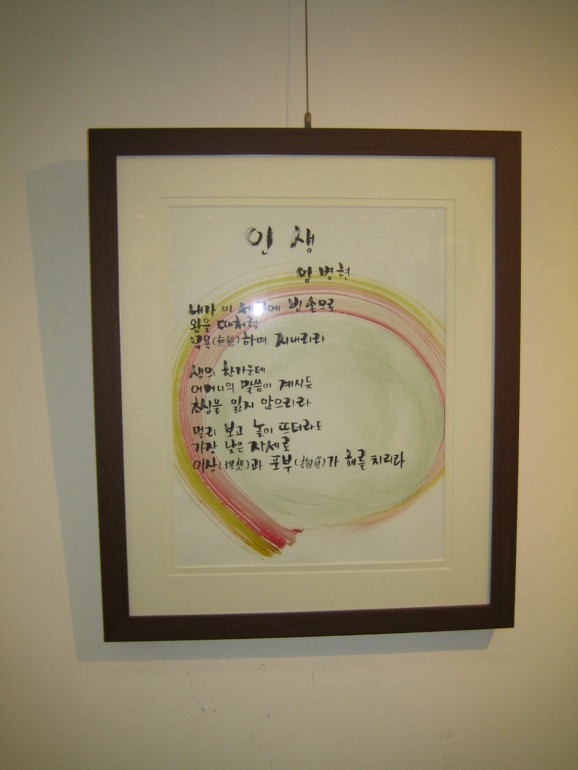 인 생
임 병 현
내가 이 세상에 빈 손으로
왔을 때처럼
하며 지내리라
생의 한가운데
어머니의 말씀이 계시듯
초심을 잃지 않으리라
멀리 보고 높이 뜨더라도
가장 낮은 자세로
이상(理想)과 포부(抱負)가 홰를 치리라